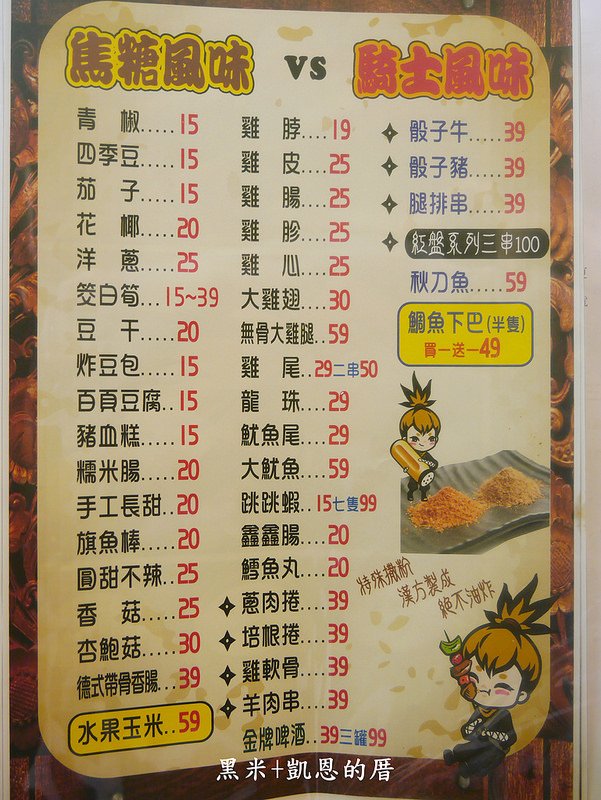 焦糖風味 VS 騎士風味
青椒.....15
四季豆.....15
茄子.....15
花椰.....20
洋蔥.....25
筊白筍...15~39
豆干.....20
炸豆包.....15
百頁豆腐..15
豬血糕.....15
糯米腸.....20
手工長甜..20
旗魚棒.....20
圓甜不辣..25
香菇.....25
杏鮑菇.....30
德式帶骨香腸...39
水果玉米..59
雞脖....19
雞皮....25
雞腸....25
雞胗....25
雞心....25
大雞翅....30
無骨大雞腿..59
雞尾..29二串50
龍珠....29
魷魚尾....29
大魷魚....59
跳跳蝦..15七隻99
鑫鑫腸....20
鱈魚丸....20
蔥肉捲....39
培根捲....39
雞軟骨....39
羊肉串....39
金牌啤酒..39三罐99
骰子牛.....39
骰子豬.....39
腿排串.....39
紅盤系列三串100
秋刀魚.....59
鯛魚下巴(半隻)
買一送一49
特殊撒粉
漢方製成
絕不油炸
黑米+凱恩的厝